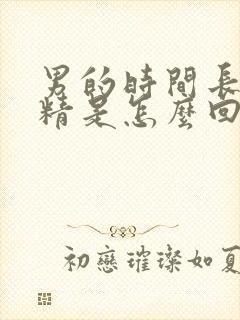 男的時間長
精是怎麼回
初戀璀璨如夏